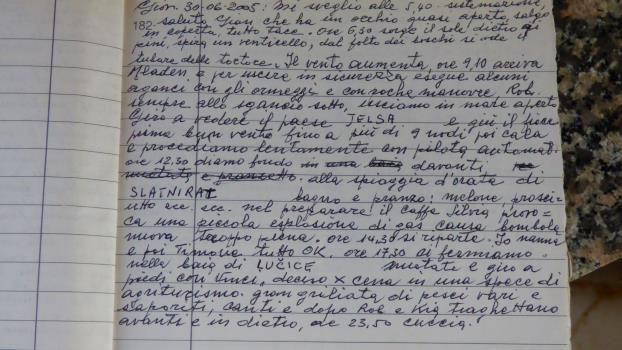 Giov. 30-06-2005: mi sveglio alle 5,40. sistemazione,
182 saluto Gian che ha un occhio quasi aperto, salgo
in coperta, tutto tace. Ore 5,30 sorge il sole dietro ai
pini, spira un venticello, dal folto dei boschi si ode il
tubare delle tortore. Il vento aumenta, ore 9,10 arriva
Mladen, e per uscire in sicurezza esegue alcuni
agganci con gli ormeggi e con poche manovre, Rob.
sempre allo sgancio sotto, usciamo in mare aperto
Giro a vedere il paese JELSA e giù il bice
prima buon vento fino a più di 9 nodi poi cala
e procediamo lentamente con pilota automat.
ore 12,30 diamo fondo in una baia davanti,
e pranzetto. alla spiaggia d'orata di
SLATNIRAT bagno e pranzo: melone prosci=
utto ecc. ecc. nel preparare il caffè Silvia provo=
ca una piccola esplosione di gas causa bombola
nuova troppo piena. ore 14,30 si riparte. Io nanna
e poi Timona tutto OK. ore 17,30 ci fermiamo
nella baia di LUČICE nuotate e giro a
piedi con Vinci, deciso x cena in una specie di
agriturismo. gran grigliata di pesci vari e
saporiti, canti e dopo Rob e Kia traghettano
avanti e in dietro, ore 23,50 cuccia.